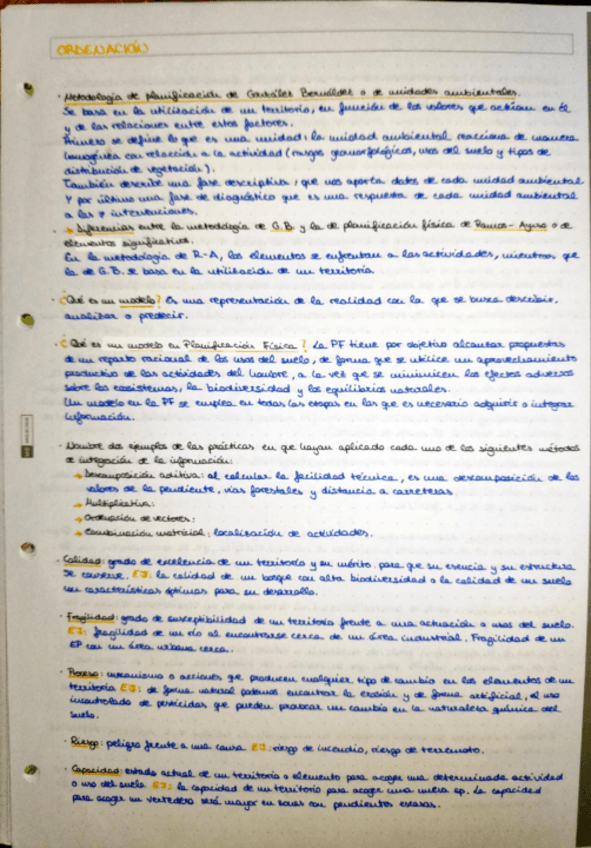 ORDENACIÓN
· Metodología de planificación de González Bernáldez o de unidades ambientales.
Se basa en la utilización de un territorio, en función de los valores que actúan en él
y de las relaciones entre estos factores.
Primero se define lo que es una unidad: la unidad ambiental reacciona de manera
homogénea con relación a la actividad (rasgos geomorfológicos, usos del suelo y tipos de
distribución de vegetación).
También describe una fase descriptiva, que nos aporta datos de cada unidad ambiental
y por último una fase de diagnóstico que es una respuesta de cada unidad ambiental
a las intervenciones.
→ Diferencias entre la metodología de G.B. y la de planificación física de Ramos-Ayuso o de
elementos significativos.
En la metodología de R-A, los elementos se enfrentan a las actividades, mientras que
la de G.B. se basa en la utilización de un territorio.
· ¿Qué es un modelo? Es una representación de la realidad con la que se busca describir,
analizar o predecir.
· ¿Qué es un modelo en Planificación Física? La PF tiene por objetivo alcanzar propuestas
de un reparto racional de los usos del suelo, de forma que se utilice un aprovechamiento
productivo de las actividades del hombre, a la vez que se minimicen los efectos adversos
sobre los ecosistemas, la biodiversidad y los equilibrios naturales.
Un modelo en la PF se emplea en todas las etapas en las que es necesario adquirir o integrar
información.
· Nombre dos ejemplos de las prácticas en que hayan aplicado cada uno de los siguientes métodos
de integración de la información:
→ Descomposición aditiva: al calcular la facilidad técnica, es una descomposición de los
valores de la pendiente, vías forestales y distancia a carreteras
→ Multiplicativa:
→ Ordenación de vectores:
→ Combinación matricial: localización de actividades.
· Calidad: grado de excelencia de un territorio y su mérito para que su esencia y su estructura
se conserve. EJ: la calidad de un bosque con alta biodiversidad o la calidad de un suelo
con características óptimas para su desarrollo.
· Fragilidad: grado de susceptibilidad de un territorio frente a una actuación o usos del suelo.
EJ: fragilidad de un río al encontrarse cerca de un área industrial. Fragilidad de un
EP con un área urbana cerca.
· Proceso: mecanismo o acciones que producen cualquier tipo de cambio en los elementos de un
territorio EJ: de forma natural podemos encontrar la erosión y de forma artificial, el uso
incontrolado de pesticidas que pueden provocar un cambio en la naturaleza química del
suelo.
· Riesgo: peligro frente a una causa EJ: riesgo de incendio, riesgo de terremoto.
· Capacidad: estado actual de un territorio o elemento para acoger una determinada actividad
o uso del suelo EJ: la capacidad de un territorio para acoger una nueva sp. La capacidad
para acoger un vertedero será mayor en zonas con pendientes escasas.